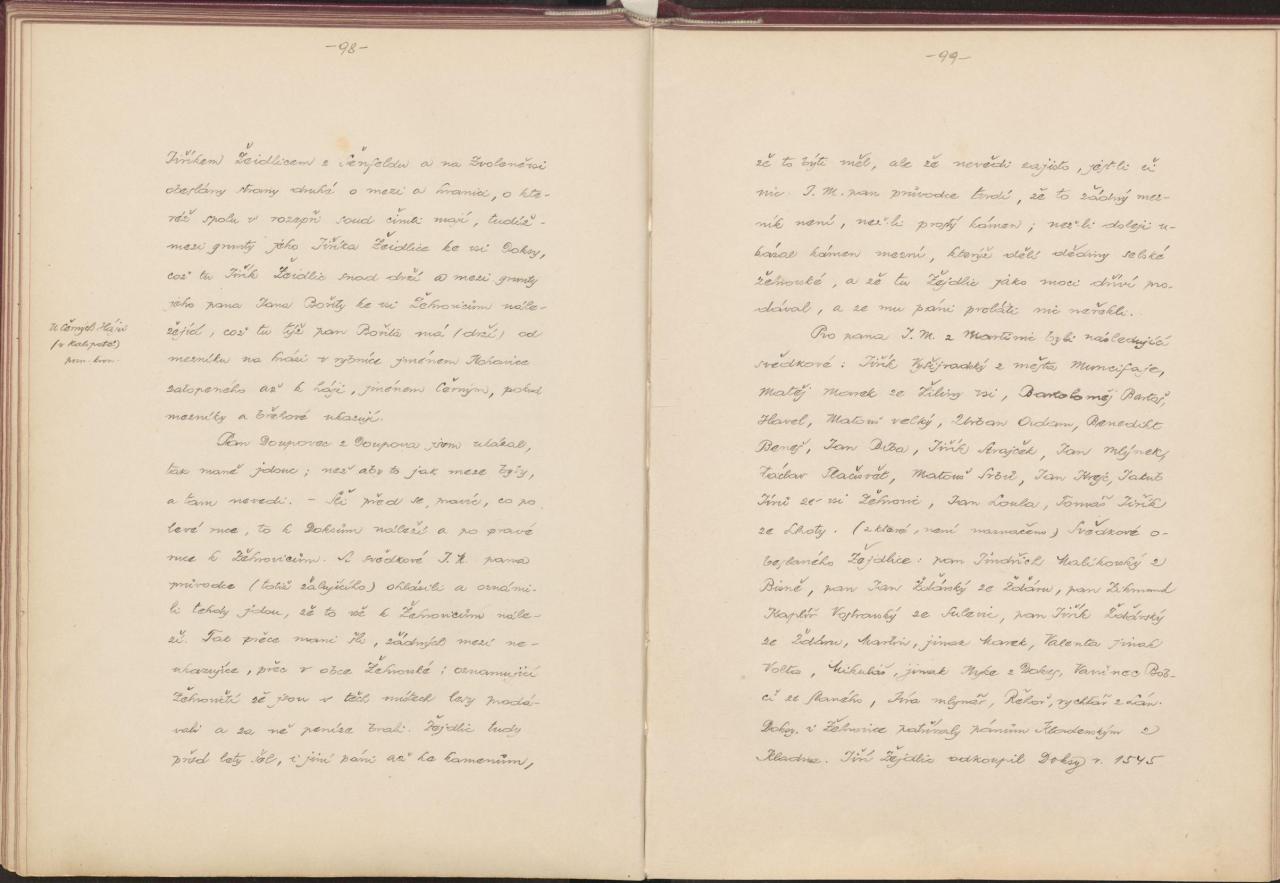 -98-
Jiříkem Žeidlicem z Šenfeldu a na Zvoleněvsi
obeslány strany druhé o mezi a hranici, o kte-
réž spolu v rozepři soud činiti mají, tudíž -
mezi grunty jeho Jiříka Žeidlice ke vsi Doksy,
což tu Jiřík Žeidlic snad drží a mezi grunty
jeho pana Jana Bořity ke vsi Žehrovicům nále-
žejíc, což tu týž pan Bořita má (drží) od
mezníku na hrázi v rybníce jménem
zatopeného až k háji, jménem Černým, pokud
mezníky a břehové ukazují.
U Černých Hájů
(v Kalspotě)
pozn. kron.
Pan Doupovec z Doupova jsem ukázal,
tak maně jdouc; než aby to jak meze byly,
a tam nevedi. - Šli před se, pravíc, co po
levé ruce, to k Doksům náleží a po pravé
ruce k Žehrovicům. A svědkové J. M. pana
průvodce (totiž žalujícího) ohlásili a oznámi-
li tehdy jdou, že to vše k Žehrovicům nále-
ží. Tak přece maní šli, žádných mezí ne-
ukazujíce, přec v obce Žehrovské; oznamující
Žehrovští že jsou v těch místech lesy prodá-
vali a za ně peníze brali. Žejdlic tudy
před lety šel, i jiní páni až ke kamenům,
-99-
že to býti měl, ale že nevědí zajisto, jest-li či
nic. J. M. pan průvodce tvrdí, že to žádný mez-
ník není, než-li prostý kámen; než-li doleji u-
kázal kámen mezní, kterýž dělí dědiny selské
žehrovské, a že tu Žejdlic jako moci dříví pro-
dával, a že mu páni probáti nic neřekli.
Pro pana J. M. z Martinic byli následující
svědkové: Jiřík Vyšehradský z města Muncifaje,
Matěj Marek ze Žiliny vsi, Bartoloměj Bartoš,
Havel, Matouš velký, Urban Adam, Benedikt
Beneš, Jan Diba, Jiřík Strajček, Jan Mlýnek,
Václav Plačsvět, Matouš Srbů, Jan Krejč, Jakub
Jírů ze vsi Žehrovic, Jan Loula, Tomáš Jiřík
ze Lhoty. (z které, není naznačeno) Svědkové o-
beslaného Žejdlice: pan Jindřich Malíkovský z
Bisně, pan Jan Žďárský ze Žďáru, pan Zikmund
Kaplíř Vostrovský ze Sulevic, pan Jiřík Žďárský
ze Žďáru, Martin, jinak Marek, Valenta jinak
Volta, Mikuláš, jinak Myke z Doksy, Vavřinec Bob-
cí ze Slaného, Jíra mlynář, Řehoř, rychtář z Lán.
Doksy i Žehrovice patřívaly pánům Kladenským z
Kladna. Jiří Žejdlic odkoupil Doksy r. 1545